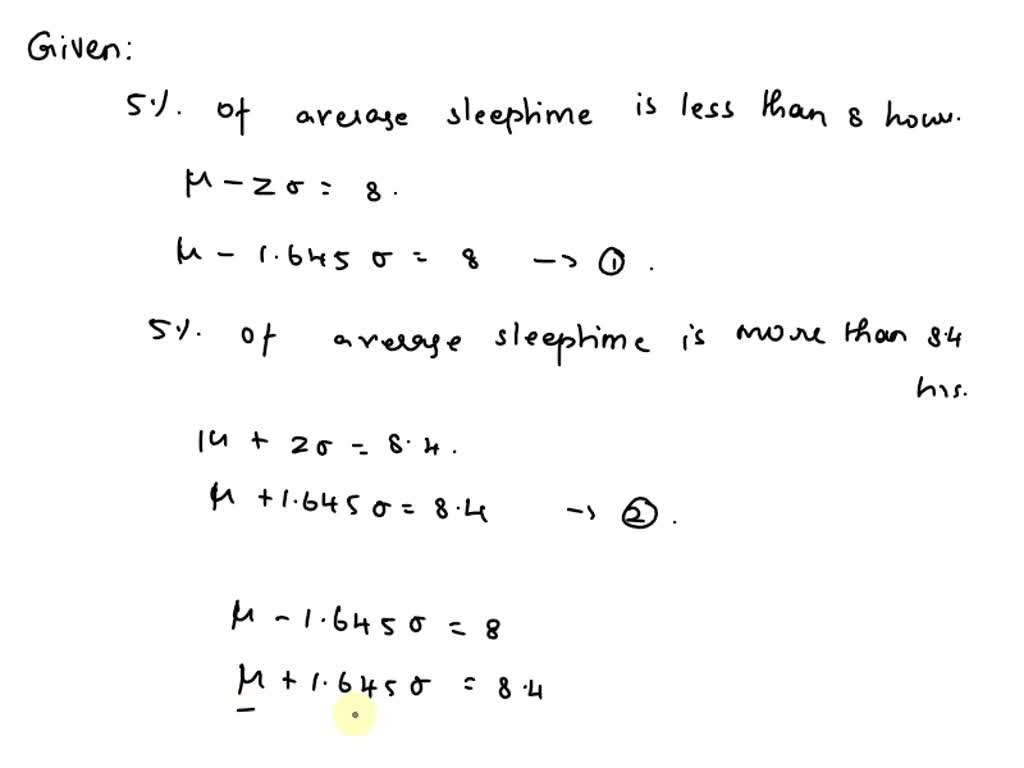 Given:
5%. of average sleeptime is less than 8 hour.
μ - zσ = 8.
μ - 1.645 σ = 8 → ①.
5%. of average sleeptime is more than 8.4
hrs.
μ + zσ = 8.4.
μ + 1.645 σ = 8.4 → ②.
μ - 1.645 σ = 8
μ + 1.645 σ = 8.4